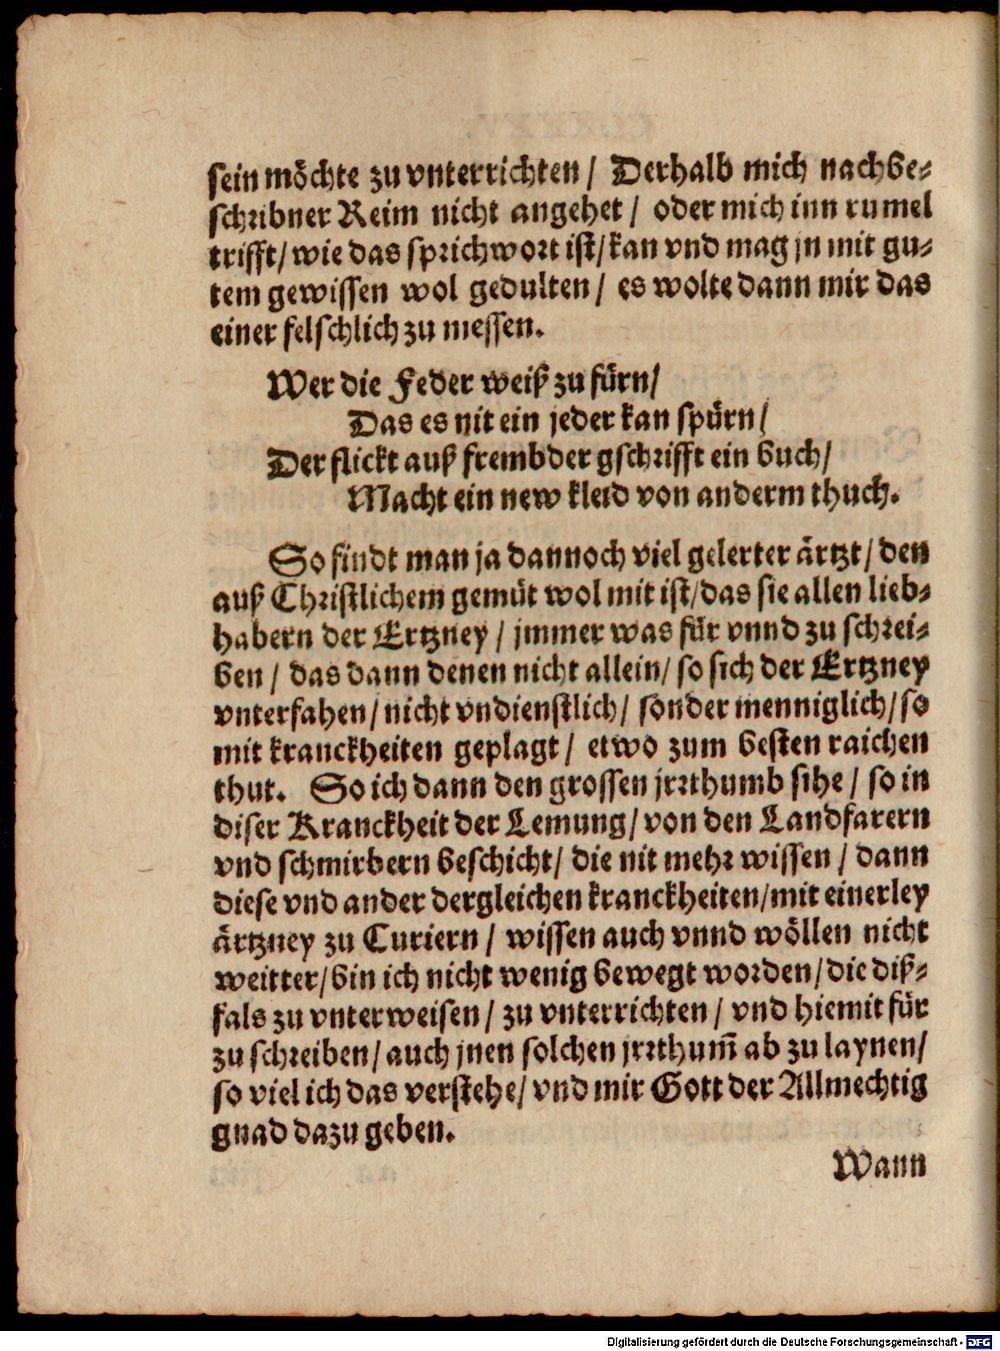 sein möchte zu vnterrichten / Derhalb mich nachbe-
schribner Reim nicht angehet / oder mich inn rumel
trifft / wie das sprichwort ist / kan vnd mag jn mit gu-
tem gewissen wol gedulten / es wolte dann mir das
einer felschlich zu messen.
Wer die Feder weiß zu fürn /
Das es nit ein jeder kan spürn /
Der flickt auß frembder gschrifft ein buch /
Macht ein new kleid von anderm thuch.
So findt man ja dannoch viel gelerter ärtzt / den
auß Christlichem gemüt wol mit ist / das sie allen lieb-
habern der Ertzney / jmmer was für vnnd zu schrei-
ben / das dann denen nicht allein / so sich der Ertzney
vnterfahen / nicht vndienstlich / sonder menniglich / so
mit kranckheiten geplagt / etwo zum besten raichen
thut. So ich dann den grossen jrrthumb sihe / so in
diser Kranckheit der Lemung / von den Landfarern
vnd schmirbern beschicht / die nit mehr wissen / dann
diese vnd ander dergleichen kranckheiten / mit einerley
ärtzney zu Curiern / wissen auch vnnd wöllen nicht
weitter / bin ich nicht wenig bewegt worden / die diß-
fals zu vnterweisen / zu vnterrichten / vnd hiemit für
zu schreiben / auch jnen solchen jrrthum̃ ab zu laynen /
so viel ich das verstehe / vnd mir Gott der Allmechtig
gnad dazu geben.
Wann
Digitalisierung gefördert durch die Deutsche Forschungsgemeinschaft - DFG